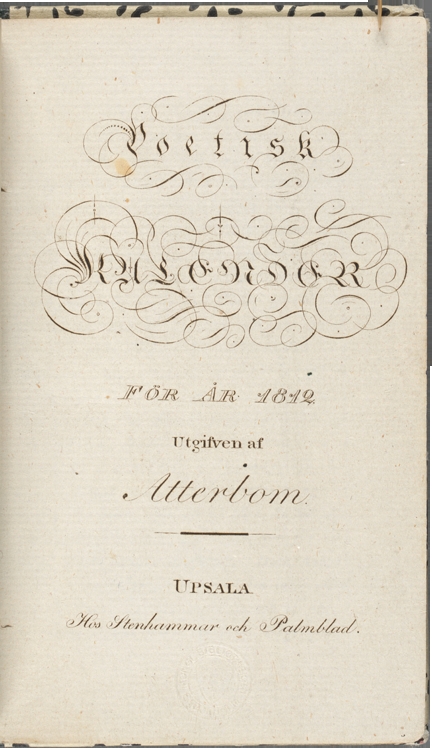 Poetisk
KALENDER
FÖR ÅR 1812
Utgifven af
Atterbom.
UPSALA.
Hos Stenhammar och Palmblad.